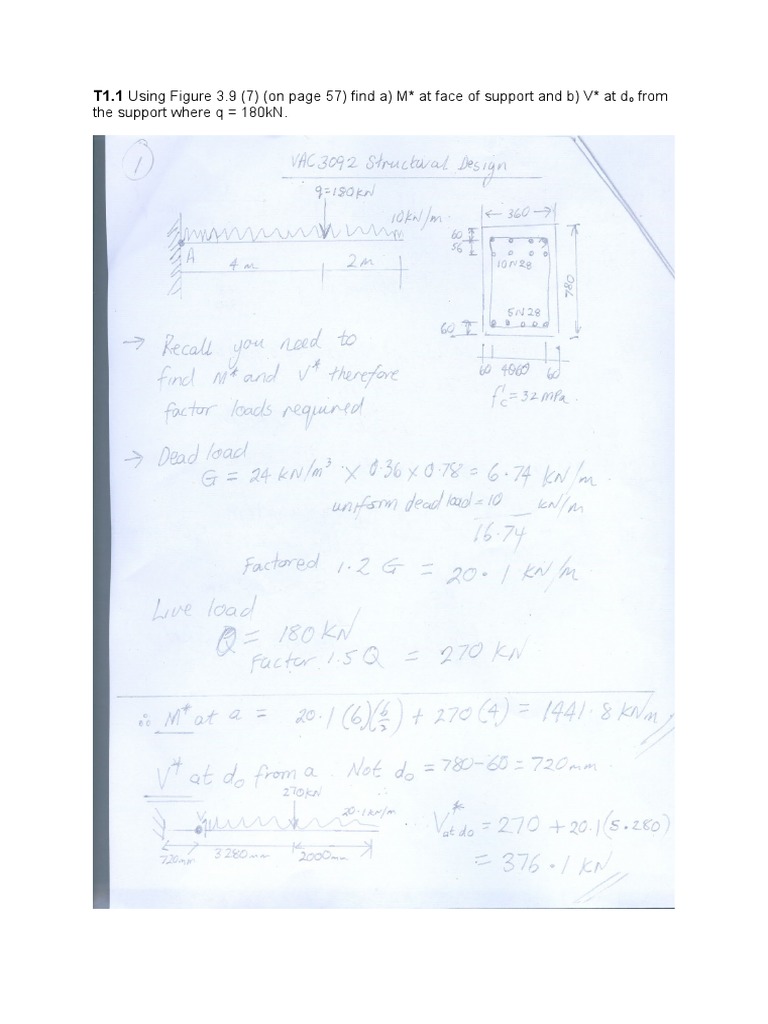 T1.1 Using Figure 3.9 (7) (on page 57) find a) M* at face of support and b) V* at dₒ from
the support where q = 180kN.
1
VAC3092 Structural Design
q=180kN
10kN/m
A
4m
2m
360
60
56
10N28
780
5N28
60
60
60
f'c = 32 MPa.
→ Recall you need to
find M* and V* therefore
factor loads required
→ Dead load
G = 24 KN/m³ × 0.36 × 0.78 = 6.74 KN/m.
uniform dead load = 10 KN/m
16.74
Factored 1.2 G = 20.1 KN/m.
Live load
Q = 180 KN
Factor 1.5Q = 270 KN
∴ M* at a = 20.1 (6)(6/2) + 270 (4) = 1441.8 KNm
V* at do from a. Not do = 780-60 = 720mm.
270KN
V
20.1 KN/m
720mm
3280mm
2000mm
V* at do = 270 + 20.1(5.280)
= 376.1 KN